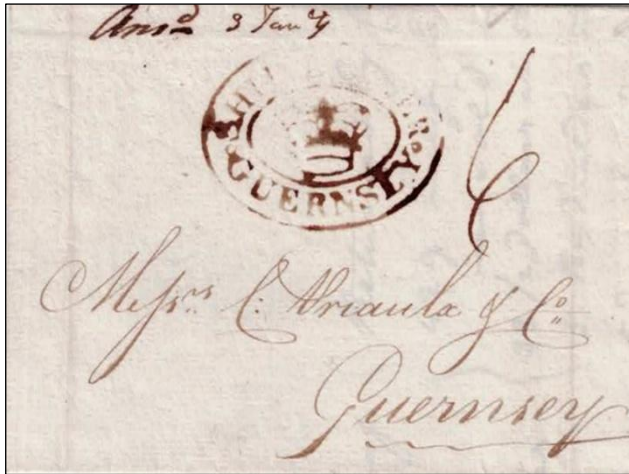 Ansd 3 Jany
SHIP LETTER
GUERNSEY
6
Messrs C. Utriaula & Co
Guernsey